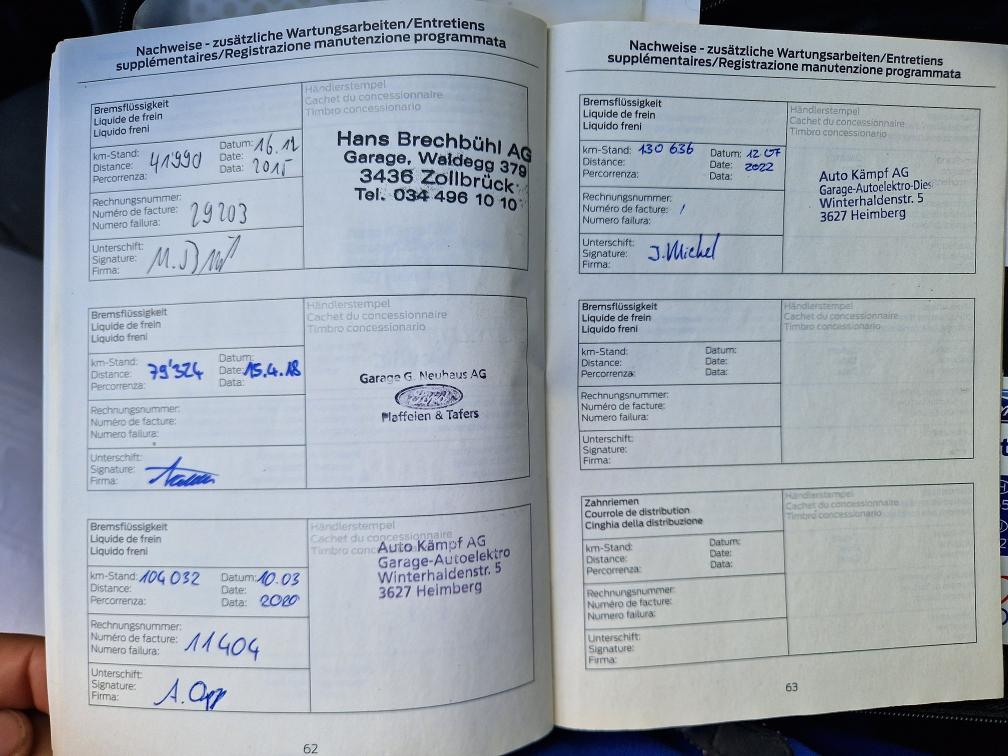 Nachweise - zusätzliche Wartungsarbeiten/Entretiens
supplémentaires/Registrazione manutenzione programmata
Bremsflüssigkeit
Liquide de frein
Liquido freni
Händlerstempel
Cachet du concessionnaire
Timbro concessionario
km-Stand: 41990 Datum: 16.12
Distance: Date: 2015
Percorrenza: Data:
Rechnungsnummer:
Numéro de facture: 29203
Numero failura:
Unterschrift:
Signature:
Firma:
Hans Brechbühl AG
Garage, Waldegg 379
3436 Zollbrück
Tel. 034 496 10 10
Bremsflüssigkeit
Liquide de frein
Liquido freni
Händlerstempel
Cachet du concessionnaire
Timbro concessionario
km-Stand: Datum:
Distance: 79'324 Date: 15.4.18
Percorrenza: Data:
Rechnungsnummer:
Numéro de facture:
Numero failura:
Unterschrift:
Signature:
Firma:
Garage G. Neuhaus AG
Plaffeien & Tafers
Bremsflüssigkeit
Liquide de frein
Liquido freni
Händlerstempel
Cachet du concessionnaire
Timbro concessionario
km-Stand: 104 032 Datum: 10.03
Distance: Date:
Percorrenza: Data: 2020
Rechnungsnummer:
Numéro de facture: 11404
Numero failura:
Unterschrift:
Signature:
Firma:
Auto Kämpf AG
Garage-Autoelektro
Winterhaldenstr. 5
3627 Heimberg
62
Nachweise - zusätzliche Wartungsarbeiten/Entretiens
supplémentaires/Registrazione manutenzione programmata
Bremsflüssigkeit
Liquide de frein
Liquido freni
Händlerstempel
Cachet du concessionnaire
Timbro concessionario
km-Stand: 130 636 Datum: 12 07
Distance: Date: 2022
Percorrenza: Data:
Rechnungsnummer:
Numéro de facture: /
Numero failura:
Unterschrift:
Signature: J. Michel
Firma:
Auto Kämpf AG
Garage-Autoelektro-Dies
Winterhaldenstr. 5
3627 Heimberg
Bremsflüssigkeit
Liquide de frein
Liquido freni
Händlerstempel
Cachet du concessionnaire
Timbro concessionario
km-Stand: Datum:
Distance: Date:
Percorrenza: Data:
Rechnungsnummer:
Numéro de facture:
Numero failura:
Unterschrift:
Signature:
Firma:
Zahnriemen
Courrole de distribution
Cinghia della distribuzione
Händlerstempel
Cachet du concessionnaire
Timbro concessionario
km-Stand: Datum:
Distance: Date:
Percorrenza: Data:
Rechnungsnummer:
Numéro de facture:
Numero failura:
Unterschrift:
Signature:
Firma:
63